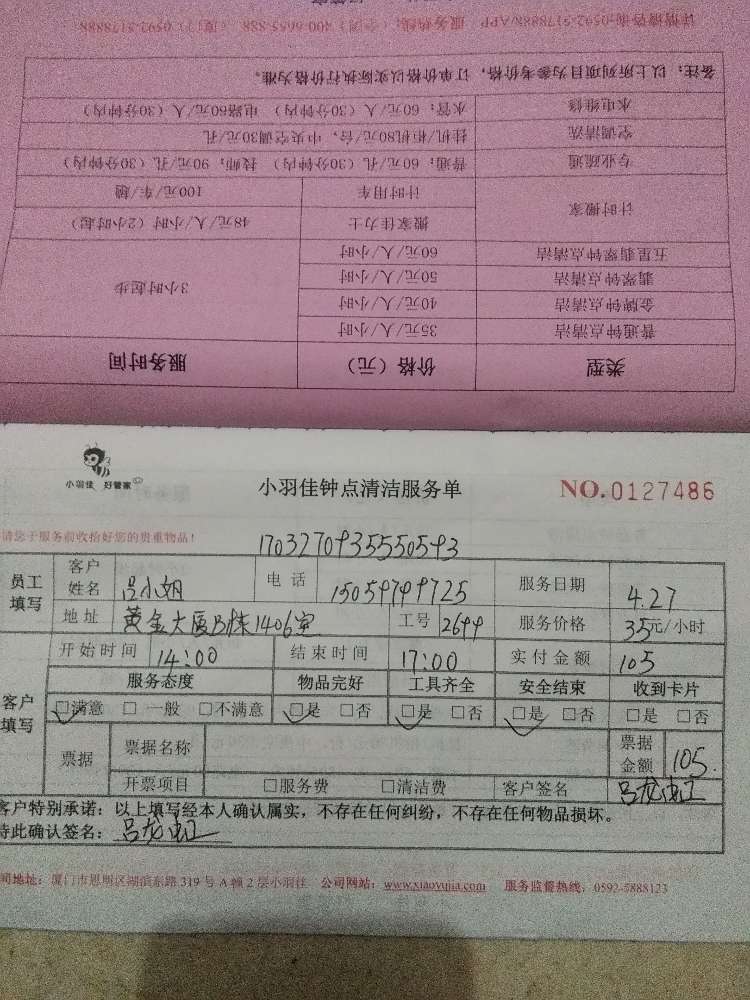 详情请咨询:0592-5178888/APP 服务热线:(全国) 400-6655-888 (厦门) 0592-5178888
备注:以上所列项目为参考价格,订单价格以实际执行价格为准。
水电维修 水管:60元/人(30分钟内) 电路60元/人(30分钟内)
空调清洗 挂机/柜机80元/台,中央空调30元/孔
专业疏通 普通:60元/孔(30分钟内) 技师:90元/孔(30分钟内)
计时搬家 计时用车 100元/车/趟
搬家佳力士 48元/人/小时(2小时起)
五星翡翠钟点清洁 60元/人/小时 3小时起步
翡翠钟点清洁 50元/人/小时
金牌钟点清洁 40元/人/小时
普通钟点清洁 35元/人/小时
类型 价格(元) 服务时间
小羽佳 好管家
小羽佳钟点清洁服务单 NO.0127486
请您于服务前收拾好您的贵重物品!
员工填写 客户姓名 吕小姐 电话 服务日期 4.27
地址 黄金大厦B栋1406室 工号 2644 服务价格 35元/小时
客户填写 开始时间 14:00 结束时间 17:00 实付金额 105
服务态度 物品完好 工具齐全 安全结束 收到卡片
□满意 □一般 □不满意 □是 □否 □是 □否 □是 □否 □是 □否
票据 票据名称 票据金额 105.
开票项目 □服务费 □清洁费 客户签名 吕龙虹
客户特别承诺:以上填写经本人确认属实,不存在任何纠纷,不存在任何物品损坏。
特此确认签名:吕龙虹
司地址:厦门市思明区湖滨东路319号A幢2层小羽佳 公司网站:www.xiaoyujia.com 服务监督热线:0592-5888123